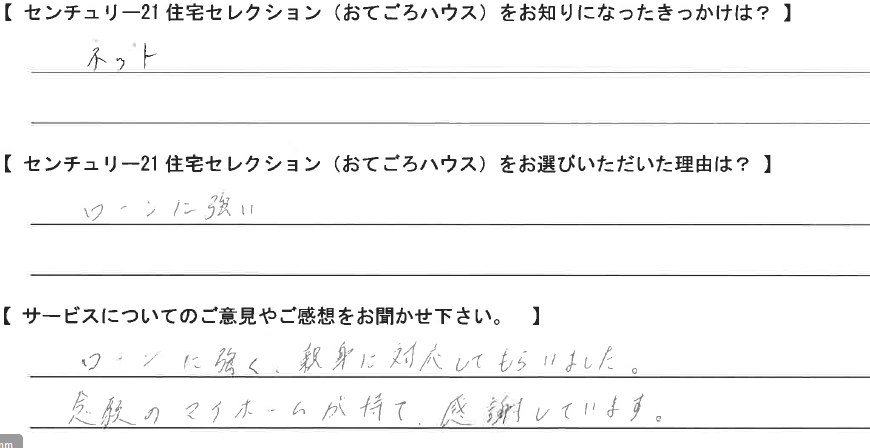 【 センチュリー21 住宅セレクション（おてごろハウス）をお知りになったきっかけは？ 】
ネット
【 センチュリー21 住宅セレクション（おてごろハウス）をお選びいただいた理由は？ 】
ローンに強い
【 サービスについてのご意見やご感想をお聞かせ下さい。 】
ローンに強く、親身に対応してもらいました。
念願のマイホームが持て、感謝しています。
mm